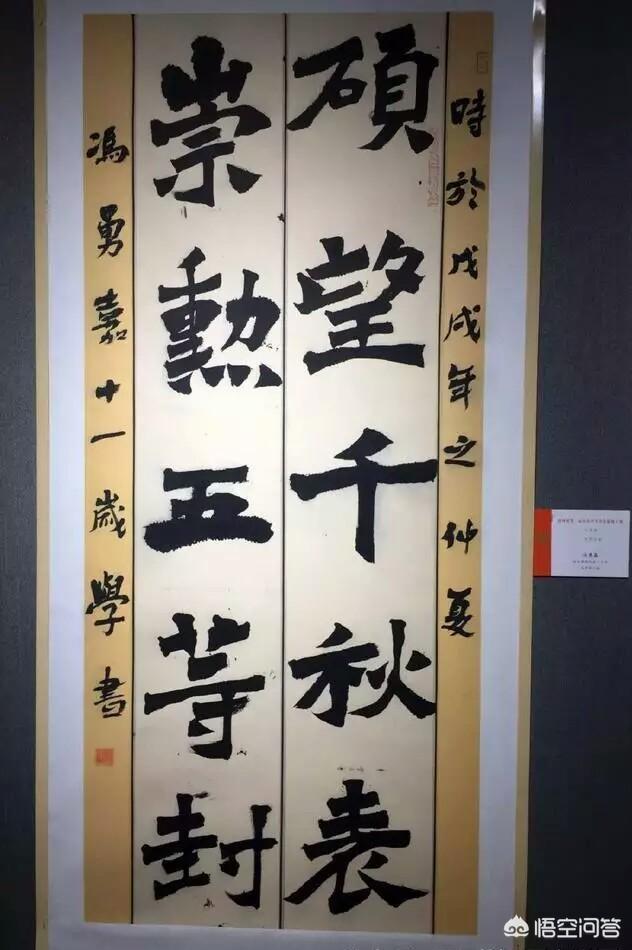 時於戊戌年之仲夏
碩望千秋表
崇勲五等封
馮勇嘉十一歲學書
悟空问答